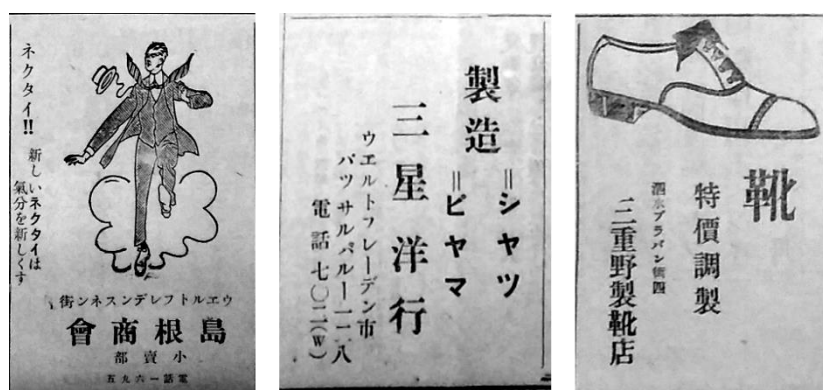 ネクタイ!!
新しいネクタイは
氣分を新しくす
ウエルトフレデンスネン街
島根商會
小賣部
電話一六九五
製造
=シヤツ
=ピヤマ
三星洋行
ウエルトフレーデン市
パツサルバルー一二八
電話 七〇二(W)
靴
特價調製
泗水ブラパン街四
三重野製靴店